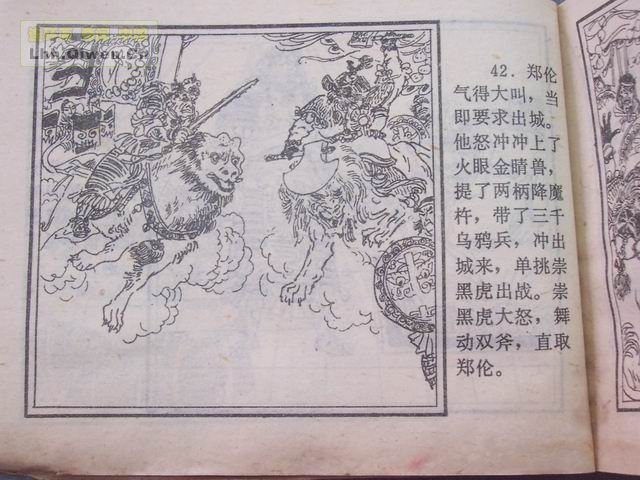 42. 郑伦
气得大叫，当
即要求出城。
他怒冲冲上了
火眼金睛兽，
提了两柄降魔
杵，带了三千
乌鸦兵，冲出
城来，单挑崇
黑虎出战。崇
黑虎大怒，舞
动双斧，直取
郑伦。